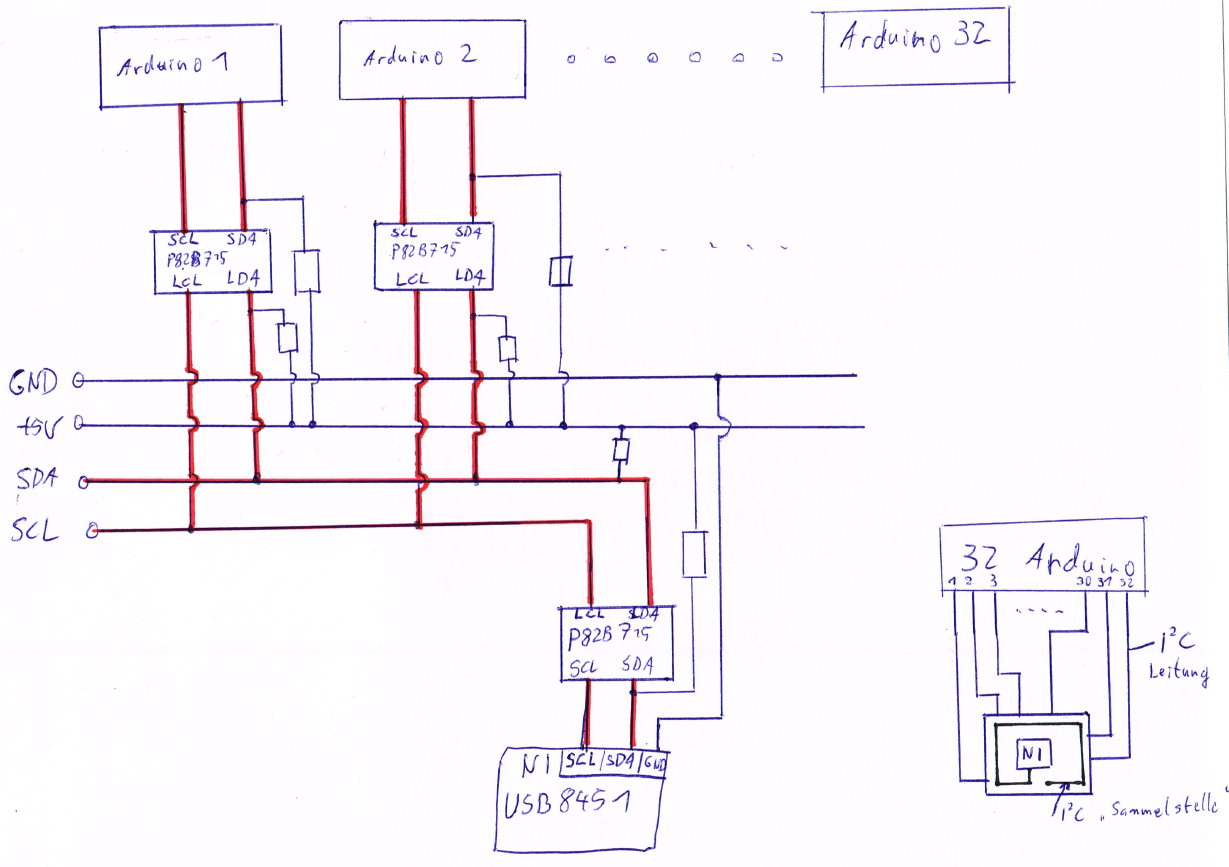 Arduino 1
Arduino 2
Arduino 32
SCL SDA
P82B715
LCL LDA
SCL SDA
P82B715
LCL LDA
GND
+5V
SDA
SCL
LCL LDA
P82B715
SCL SDA
NI SCL/SDA/GND
USB 8451
32 Arduino
1 2 3 30 31 32
I²C
Leitung
NI
I²C „Sammelstelle“